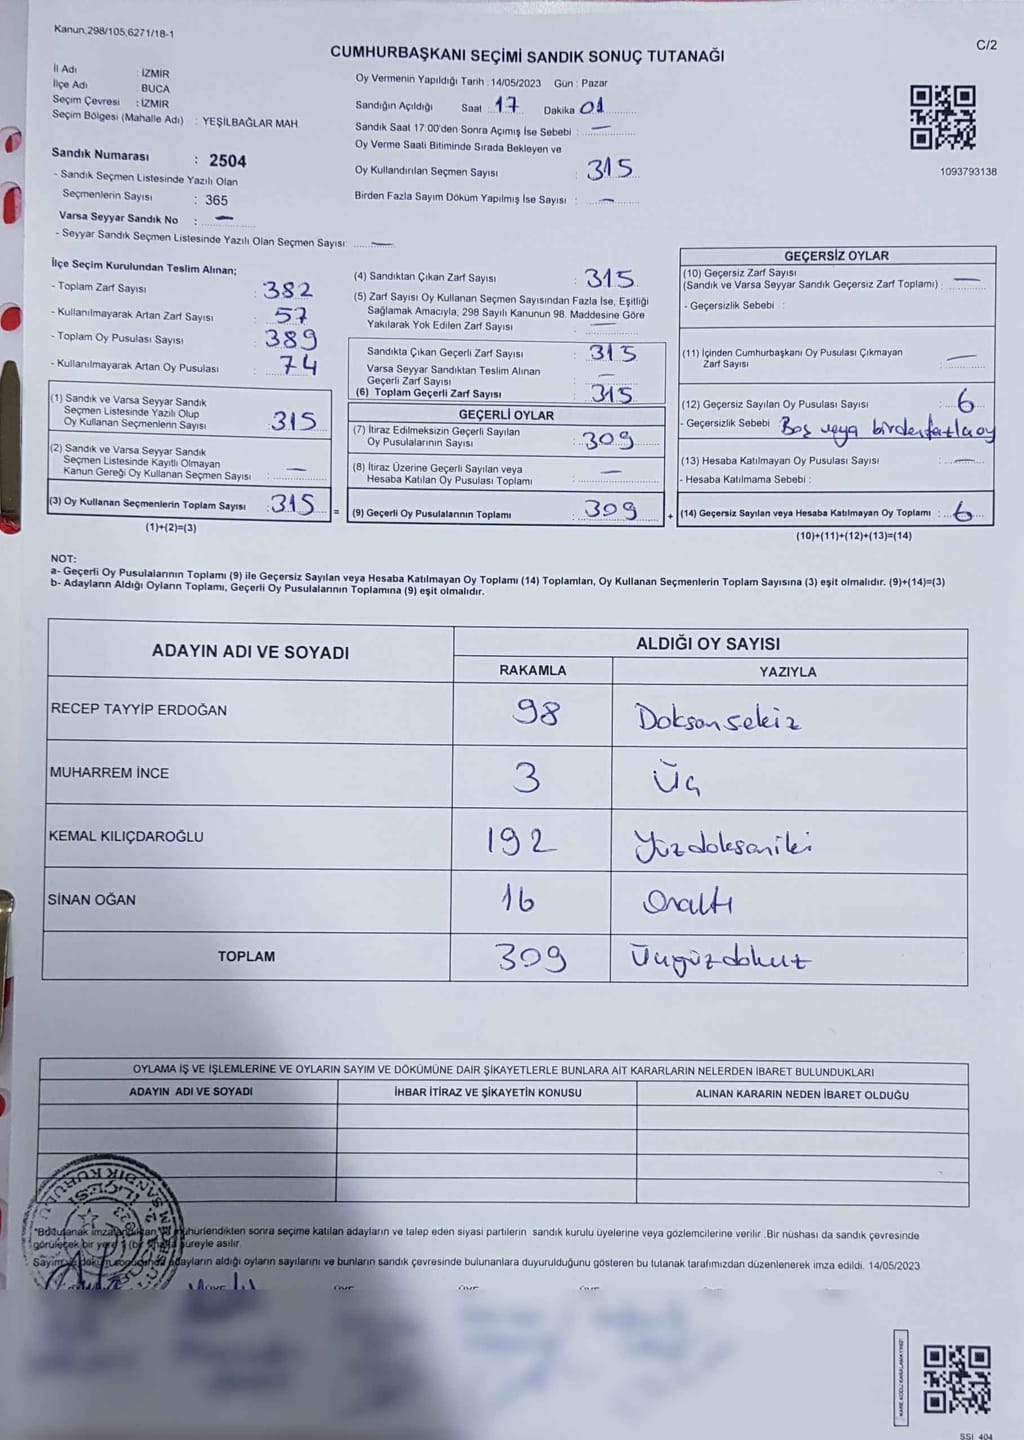 Kanun,298/105,6271/18-1
C/2
CUMHURBAŞKANI SEÇİMİ SANDIK SONUÇ TUTANAĞI
İl Adı : İZMİR
İlçe Adı BUCA
Seçim Çevresi : İZMİR
Seçim Bölgesi (Mahalle Adı) : YEŞİLBAĞLAR MAH.
Oy Vermenin Yapıldığı Tarih : 14/05/2023 Gün : Pazar
Sandığın Açıldığı Saat : 17 Dakika 01
Sandık Saat 17:00'den Sonra Açımış İse Sebebi : —
Oy Verme Saati Bitiminde Sırada Bekleyen ve
Oy Kullandırılan Seçmen Sayısı : 315
Birden Fazla Sayım Döküm Yapılmış İse Sayısı : —
1093793138
Sandık Numarası : 2504
- Sandık Seçmen Listesinde Yazılı Olan
Seçmenlerin Sayısı : 365
Varsa Seyyar Sandık No : —
- Seyyar Sandık Seçmen Listesinde Yazılı Olan Seçmen Sayısı: —
İlçe Seçim Kurulundan Teslim Alınan;
- Toplam Zarf Sayısı : 382
- Kullanılmayarak Artan Zarf Sayısı : 57
- Toplam Oy Pusulası Sayısı : 389
- Kullanılmayarak Artan Oy Pusulası : 74
(1) Sandık ve Varsa Seyyar Sandık
Seçmen Listesinde Yazılı Olup
Oy Kullanan Seçmenlerin Sayısı : 315
(2) Sandık ve Varsa Seyyar Sandık
Seçmen Listesinde Kayıtlı Olmayan
Kanun Gereği Oy Kullanan Seçmen Sayısı : —
(3) Oy Kullanan Seçmenlerin Toplam Sayısı : 315 =
(1)+(2)=(3)
(4) Sandıktan Çıkan Zarf Sayısı : 315
(5) Zarf Sayısı Oy Kullanan Seçmen Sayısından Fazla İse, Eşitliği
Sağlamak Amacıyla; 298 Sayılı Kanunun 98. Maddesine Göre
Yakılarak Yok Edilen Zarf Sayısı : —
Sandıkta Çıkan Geçerli Zarf Sayısı : 315
Varsa Seyyar Sandıktan Teslim Alınan
Geçerli Zarf Sayısı : —
(6) Toplam Geçerli Zarf Sayısı : 315
GEÇERLİ OYLAR
(7) İtiraz Edilmeksizin Geçerli Sayılan
Oy Pusulalarının Sayısı : 309
(8) İtiraz Üzerine Geçerli Sayılan veya
Hesaba Katılan Oy Pusulası Toplamı : —
(9) Geçerli Oy Pusulalarının Toplamı : 309 +
GEÇERSİZ OYLAR
(10) Geçersiz Zarf Sayısı
(Sandık ve Varsa Seyyar Sandık Geçersiz Zarf Toplamı) : —
- Geçersizlik Sebebi :
(11) İçinden Cumhurbaşkanı Oy Pusulası Çıkmayan
Zarf Sayısı : —
(12) Geçersiz Sayılan Oy Pusulası Sayısı : 6
- Geçersizlik Sebebi : Boş veya birden fazla oy
(13) Hesaba Katılmayan Oy Pusulası Sayısı : —
- Hesaba Katılmama Sebebi :
(14) Geçersiz Sayılan veya Hesaba Katılmayan Oy Toplamı : 6
(10)+(11)+(12)+(13)=(14)
NOT:
a- Geçerli Oy Pusulalarının Toplamı (9) ile Geçersiz Sayılan veya Hesaba Katılmayan Oy Toplamı (14) Toplamları, Oy Kullanan Seçmenlerin Toplam Sayısına (3) eşit olmalıdır. (9)+(14)=(3)
b- Adayların Aldığı Oyların Toplamı, Geçerli Oy Pusulalarının Toplamına (9) eşit olmalıdır.
ADAYIN ADI VE SOYADI
ALDIĞI OY SAYISI
RAKAMLA YAZIYLA
RECEP TAYYİP ERDOĞAN 98 Doksansekiz
MUHARREM İNCE 3 Üç
KEMAL KILIÇDAROĞLU 192 Yüzdoksaniki
SİNAN OĞAN 16 Onaltı
TOPLAM 309 Üçyüzdokuz
OYLAMA İŞ VE İŞLEMLERİNE VE OYLARIN SAYIM VE DÖKÜMÜNE DAİR ŞİKAYETLERLE BUNLARA AİT KARARLARIN NELERDEN İBARET BULUNDUKLARI
ADAYIN ADI VE SOYADI İHBAR İTİRAZ VE ŞİKAYETİN KONUSU ALINAN KARARIN NEDEN İBARET OLDUĞU
mühürlendikten sonra seçime katılan adayların ve talep eden siyasi partilerin sandık kurulu üyelerine veya gözlemcilerine verilir .Bir nüshası da sandık çevresinde
görülecek bir yere süreyle asılır.
adayların aldığı oyların sayılarını ve bunların sandık çevresinde bulunanlara duyurulduğunu gösteren bu tutanak tarafımızdan düzenlenerek imza edildi. 14/05/2023
SSİ 404